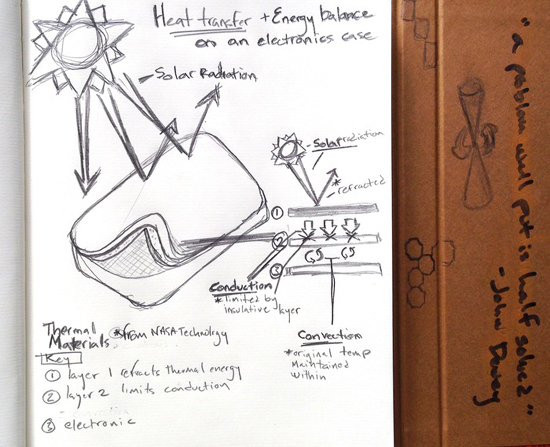 Heat transfer + Energy balance
on an electronics case
Solar Radiation
Solar radiation
* refracted
①
②
③
Conduction
*limited by
insulative layer
Convection
*original temp
Maintained
within
Thermal
Materials
*from NASA Technology
Key
① layer 1 refracts thermal energy
② layer 2 limits conduction
③ electronic
"a problem well put is half solved"
- John Dewey